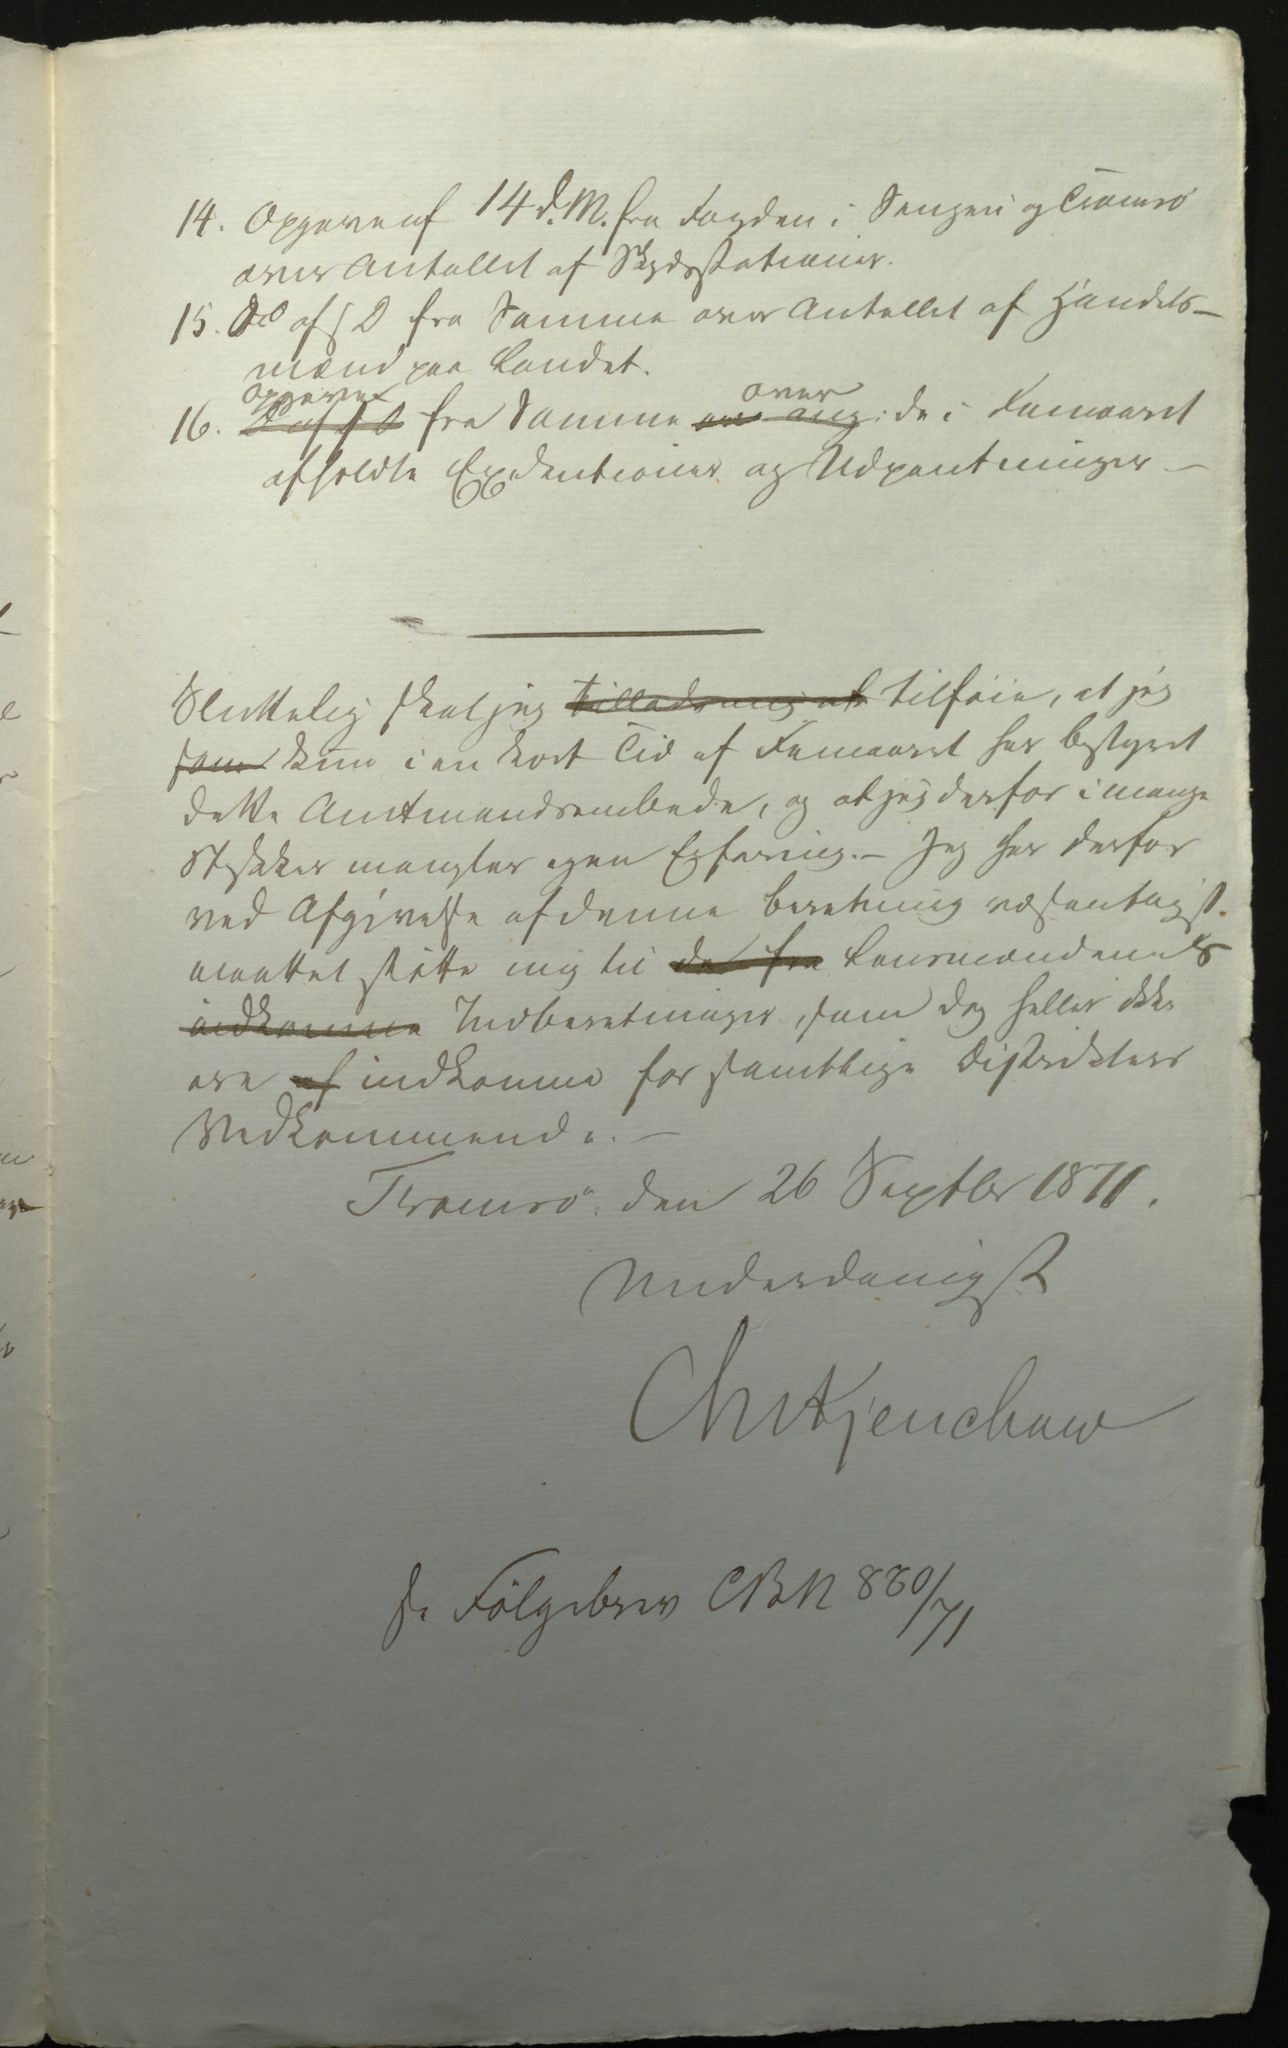 14. Opgave af 14 d. M. fra Fogden i Senjen og Tromsø
over Antallet af Skydsstationer.
15. Do af s D fra Samme over Antallet af Handels-
mænd paa Landet.
Opgave over
16. D af s D fra Samme ang: de i Femaaret
afholdte Exekutioner og Udpantninger –
Sluttelig skal jeg tillade mig at tilføie, at jeg
som kun i en kort Tid af Femaaret har bestyret
dette Amtmandsembede, og at jeg derfor i mange
Stykker mangler egen Erfaring. – Jeg har derfor
ved Afgivelse af denne Beretning væsentligst
maattet støtte mig til de fra Lensmændenes
indkomne Indberetninger, som dog heller ikke
ere af indkomne for samtlige Distrikters
Vedkommende. –
Tromsø den 26 Septbr 1871.
Underdanigst
Chr Kjerschow
se Følgebrev CBN 880/71